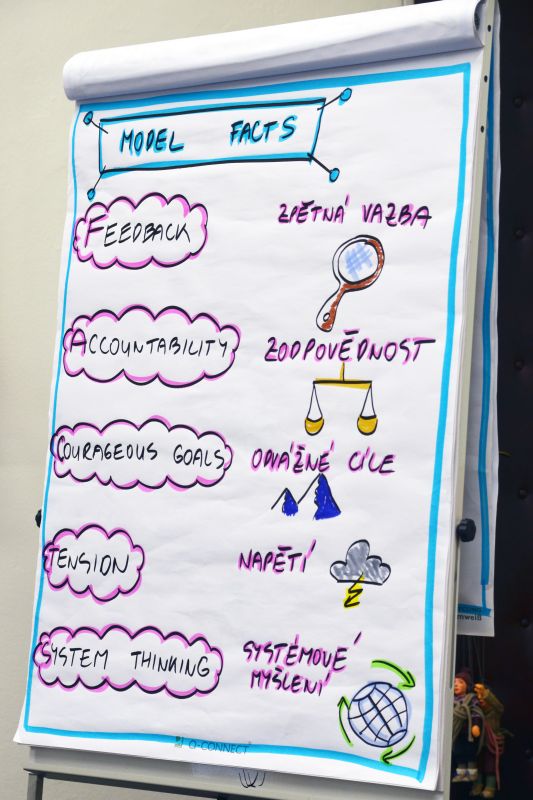 MODEL FACTS
FEEDBACK ZPĚTNÁ VAZBA
ACCOUNTABILITY ZODPOVĚDNOST
COURAGEOUS GOALS ODVÁŽNÉ CÍLE
TENSION NAPĚTÍ
SYSTEM THINKING SYSTÉMOVÉ
MYŠLENÍ
Q-CONNECT